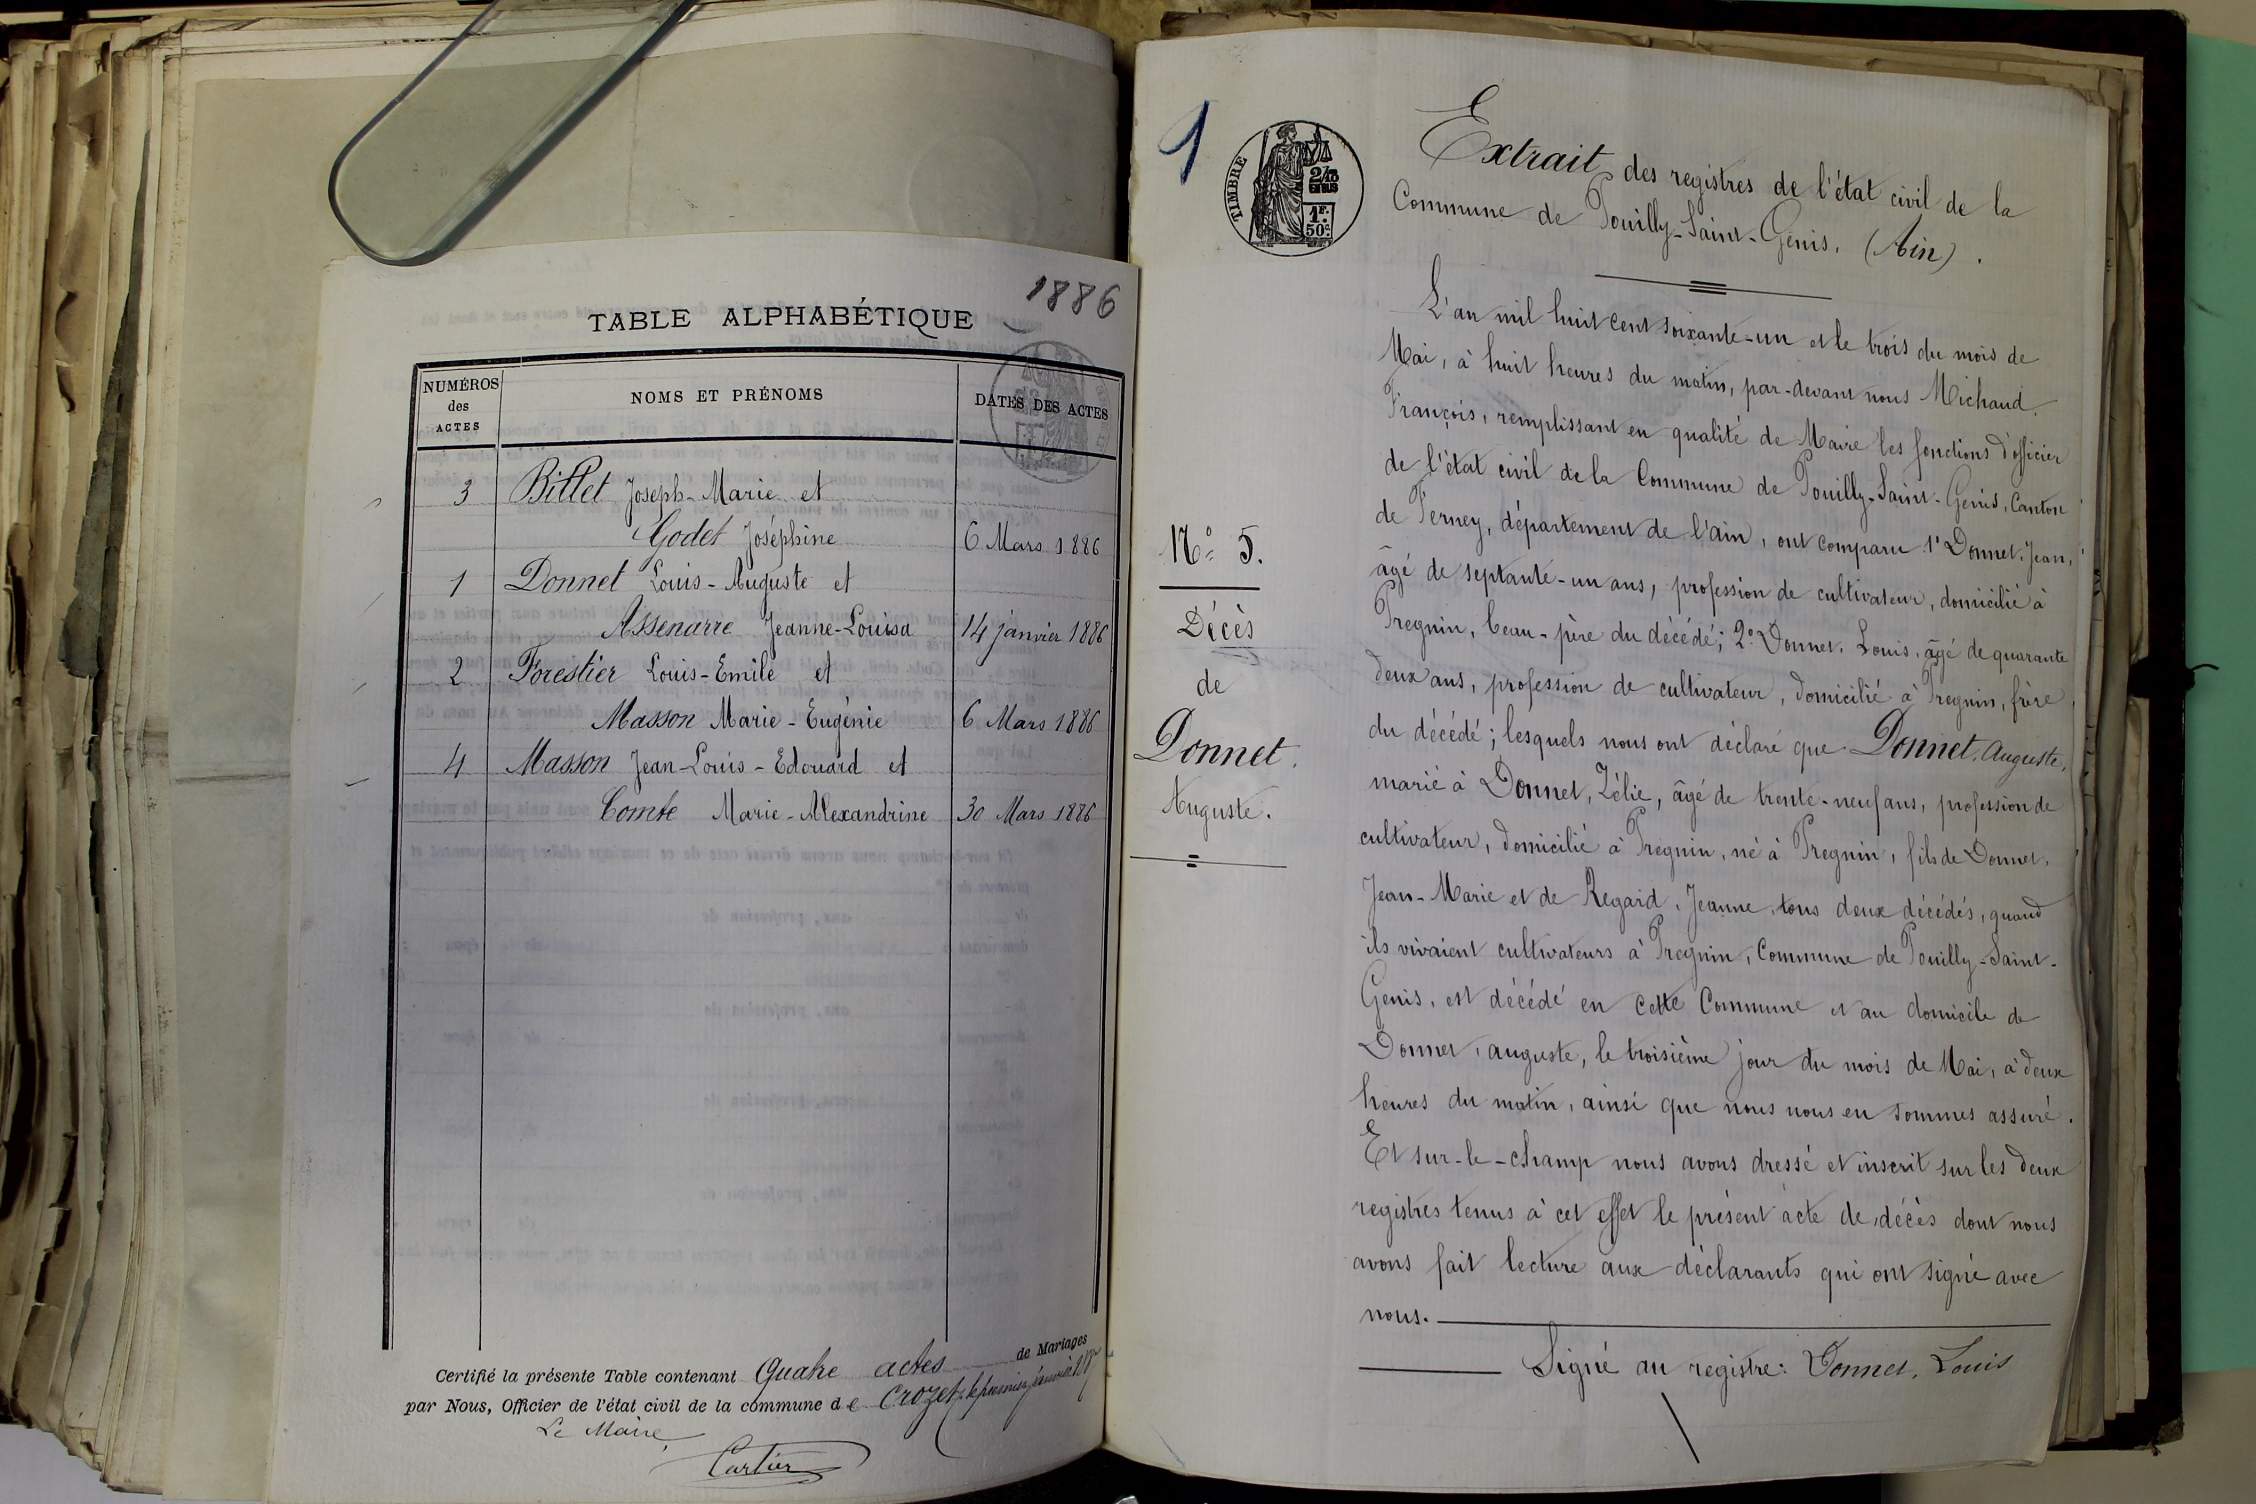 1886
TABLE ALPHABÉTIQUE
NUMÉROS des ACTES
NOMS ET PRÉNOMS
DATES DES ACTES
3 Billet Joseph-Marie et
Godet Joséphine 6 Mars 1886
1 Donnet Louis-Auguste et
Assenarre Jeanne-Louisa 14 janvier 1886
2 Forestier Louis-Emile et
Masson Marie-Eugénie 6 Mars 1886
4 Masson Jean-Louis-Edouard et
Comte Marie-Alexandrine 30 Mars 1886
Certifié la présente Table contenant Quatre actes de Mariages
par Nous, Officier de l'état civil de la commune de Crozet, le premier janvier
Le Maire,
Cartier
1
TIMBRE
2/10 EN SUS
1F. 50c.
Extrait des registres de l'état civil de la
Commune de Pouilly-Saint-Genis, (Ain).
N° 5.
Décès
de
Donnet.
Auguste.
L'an mil huit cent soixante-un et le trois du mois de
Mai, à huit heures du matin, par-devant nous Michaud
François, remplissant en qualité de Maire les fonctions d'officier
de l'état civil de la Commune de Pouilly-Saint-Genis, Canton
de Ferney, département de l'ain, ont comparu 1° Donnet, Jean,
âgé de septante-un ans, profession de cultivateur, domicilié à
Pregnin, beau-père du décédé; 2° Donnet, Louis, âgé de quarante
deux ans, profession de cultivateur, domicilié à Pregnin, frère
du décédé; lesquels nous ont déclaré que Donnet, Auguste,
marié à Donnet, Zélie, âgé de trente-neuf ans, profession de
cultivateur, domicilié à Pregnin, né à Pregnin, fils de Donnet,
Jean-Marie et de Regard, Jeanne, tous deux décédés, quand
ils vivaient cultivateurs à Pregnin, Commune de Pouilly-Saint-
Genis, est décédé en cette Commune et au domicile de
Donnet, auguste, le troisième jour du mois de Mai, à deux
heures du matin, ainsi que nous nous en sommes assuré.
Et sur-le-champ nous avons dressé et inscrit sur les deux
registres tenus à cet effet le présent acte de décès dont nous
avons fait lecture aux déclarants qui ont signé avec
nous.
Signé au registre: Donnet, Louis